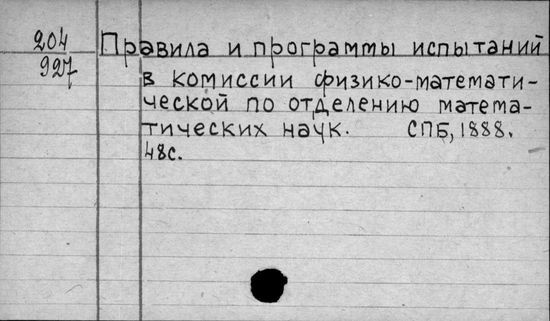 204
927
Правила и программы испытаний
в комиссии физико-математи-
ческой по отделению матема-
тических наук. СПБ, 1888.
48с.